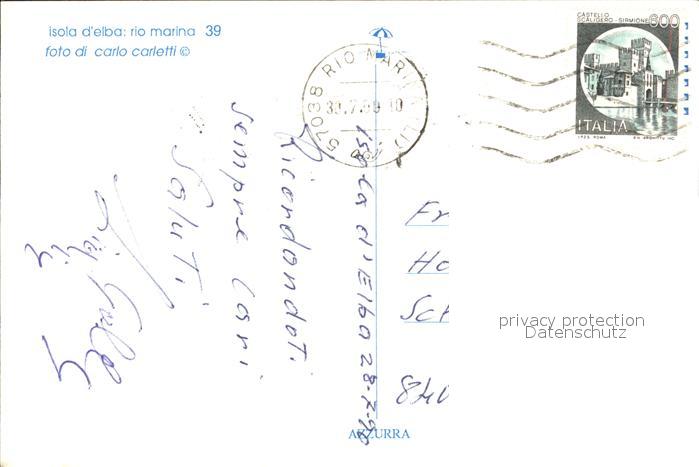 isola d'elba: rio marina 39
foto di carlo carletti ©
57038 RIO MARINA (LI)
CASTELLO
SCALIGERO - SIRMIONE
600
ITALIA
Isola d'Elba 28-7-90
Ricordandoti
sempre Cari
Saluti
Fr
Ho
Sch
840
privacy protection
Datenschutz
AZZURRA